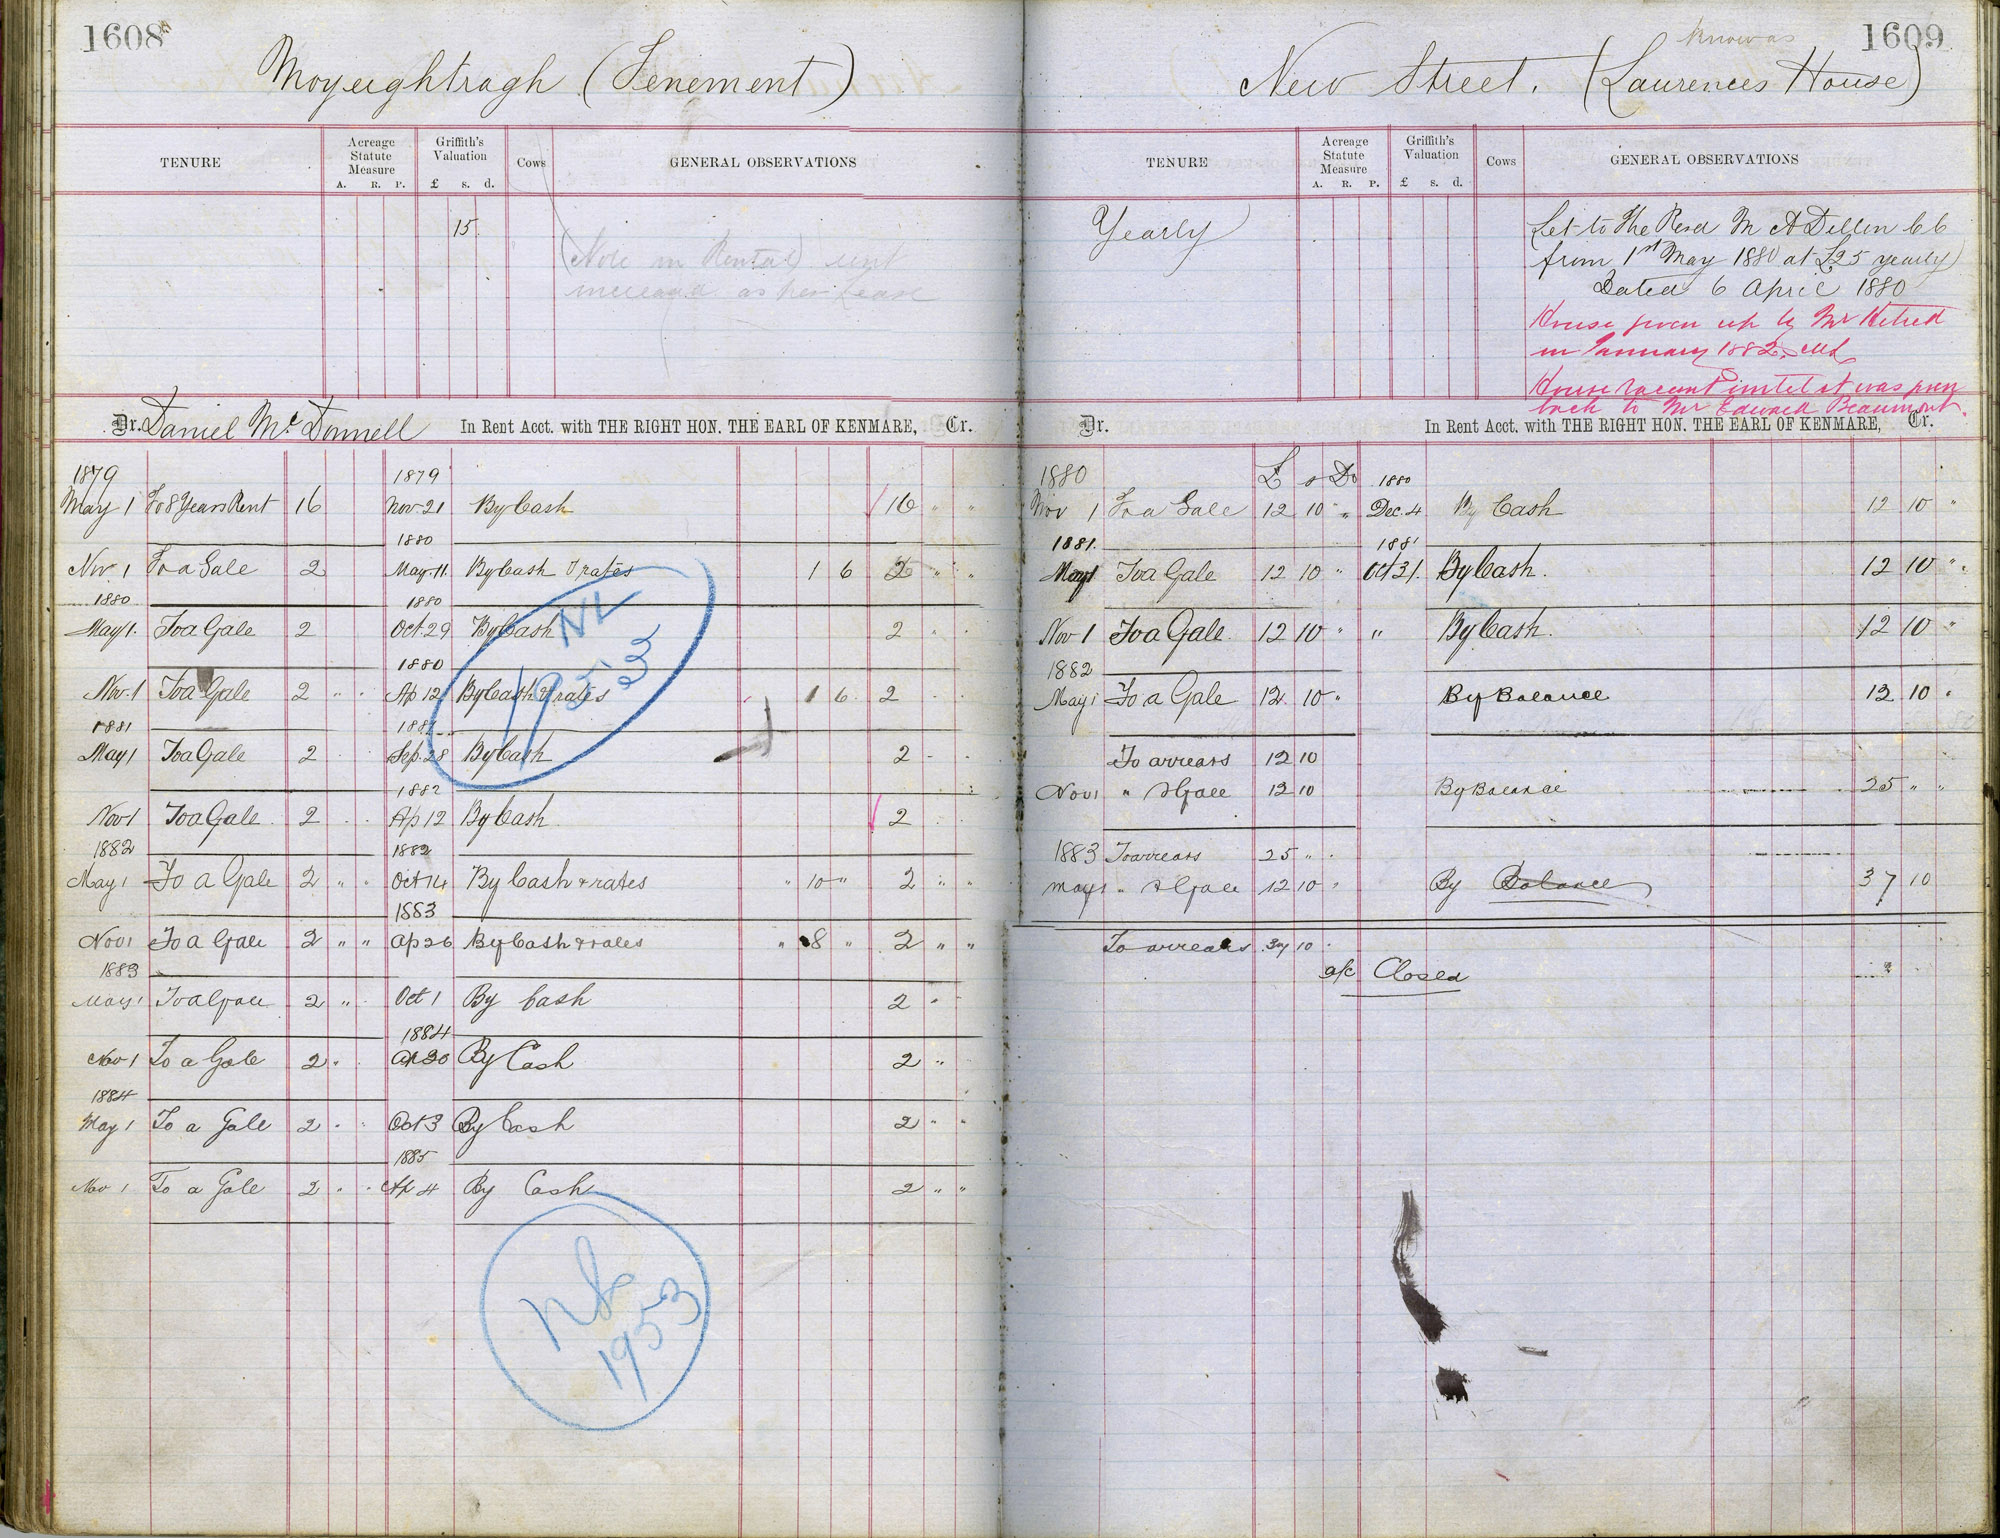 1608
Moyeightragh (Tenement)
TENURE
Acreage Statute Measure
A. R. P.
Griffith's Valuation
£ s. d.
Cows
GENERAL OBSERVATIONS
15
(Note in Rental) rent
increased as per Lease
Dr. Daniel McDonnell In Rent Acct. with THE RIGHT HON. THE EARL OF KENMARE, Cr.
1879 1879
May 1 To 8 Years Rent 16 Nov 21 By Cash 16 " "
1880
Nov. 1 To a Gale 2 May. 11. By Cash & rates 1 6 2 " "
1880 1880
May 1. To a Gale 2 Oct. 29 By Cash 2 " "
1880
Nov. 1 To a Gale 2 " " Ap 12 By Cash & rates 1 6 2
1881 1881
May 1 To a Gale 2 Sep. 28 By Cash 2
1882
Nov 1 To a Gale 2 Ap 12 By Cash 2
1882 1882
May 1 To a Gale 2 " " Oct 14 By Cash & rates " 10 " 2 " "
1883
Nov 1 To a Gale 2 " " Ap 26 By Cash & rates " 8 " 2 " "
1883
May 1 To a Gale 2 " Oct 1 By Cash 2 "
1884
Nov 1 To a Gale 2 " Ap 30 By Cash 2 "
1884
May 1 To a Gale 2 " Oct 3 By Cash 2 " "
1885
Nov 1 To a Gale 2 " " Ap 4 By Cash 2 " "
NL
1953
NL
1953
1609
New Street. (Laurences House)
TENURE
Acreage Statute Measure
A. R. P.
Griffith's Valuation
£ s. d.
Cows
GENERAL OBSERVATIONS
Yearly
Let to The Revd M A Dillon CC
from 1st May 1880 at £25 yearly
Dated 6 April 1880
House given up by Mr
in January 1882.
House vacant until it was given
back to Mr Edward Beaumont.
Dr. In Rent Acct. with THE RIGHT HON. THE EARL OF KENMARE, Cr.
1880 £ s D 1880
Nov 1 To a Gale 12 10 " Dec. 4 By Cash 12 10 "
1881. 1881
May 1 To a Gale 12 10 " Oct 31. By Cash. 12 10 "
Nov 1 To a Gale 12 10 " " By Cash. 12 10 "
1882
May 1 To a Gale 12 10 " By Balance 12 10 "
To arrears 12 10
Nov 1 " & Gale 12 10 By Balance 25 " "
1883 To arrears 25 " "
May 1 " & Gale 12 10 " By Balance 37 10
To arrears 37 10
a/c Closed